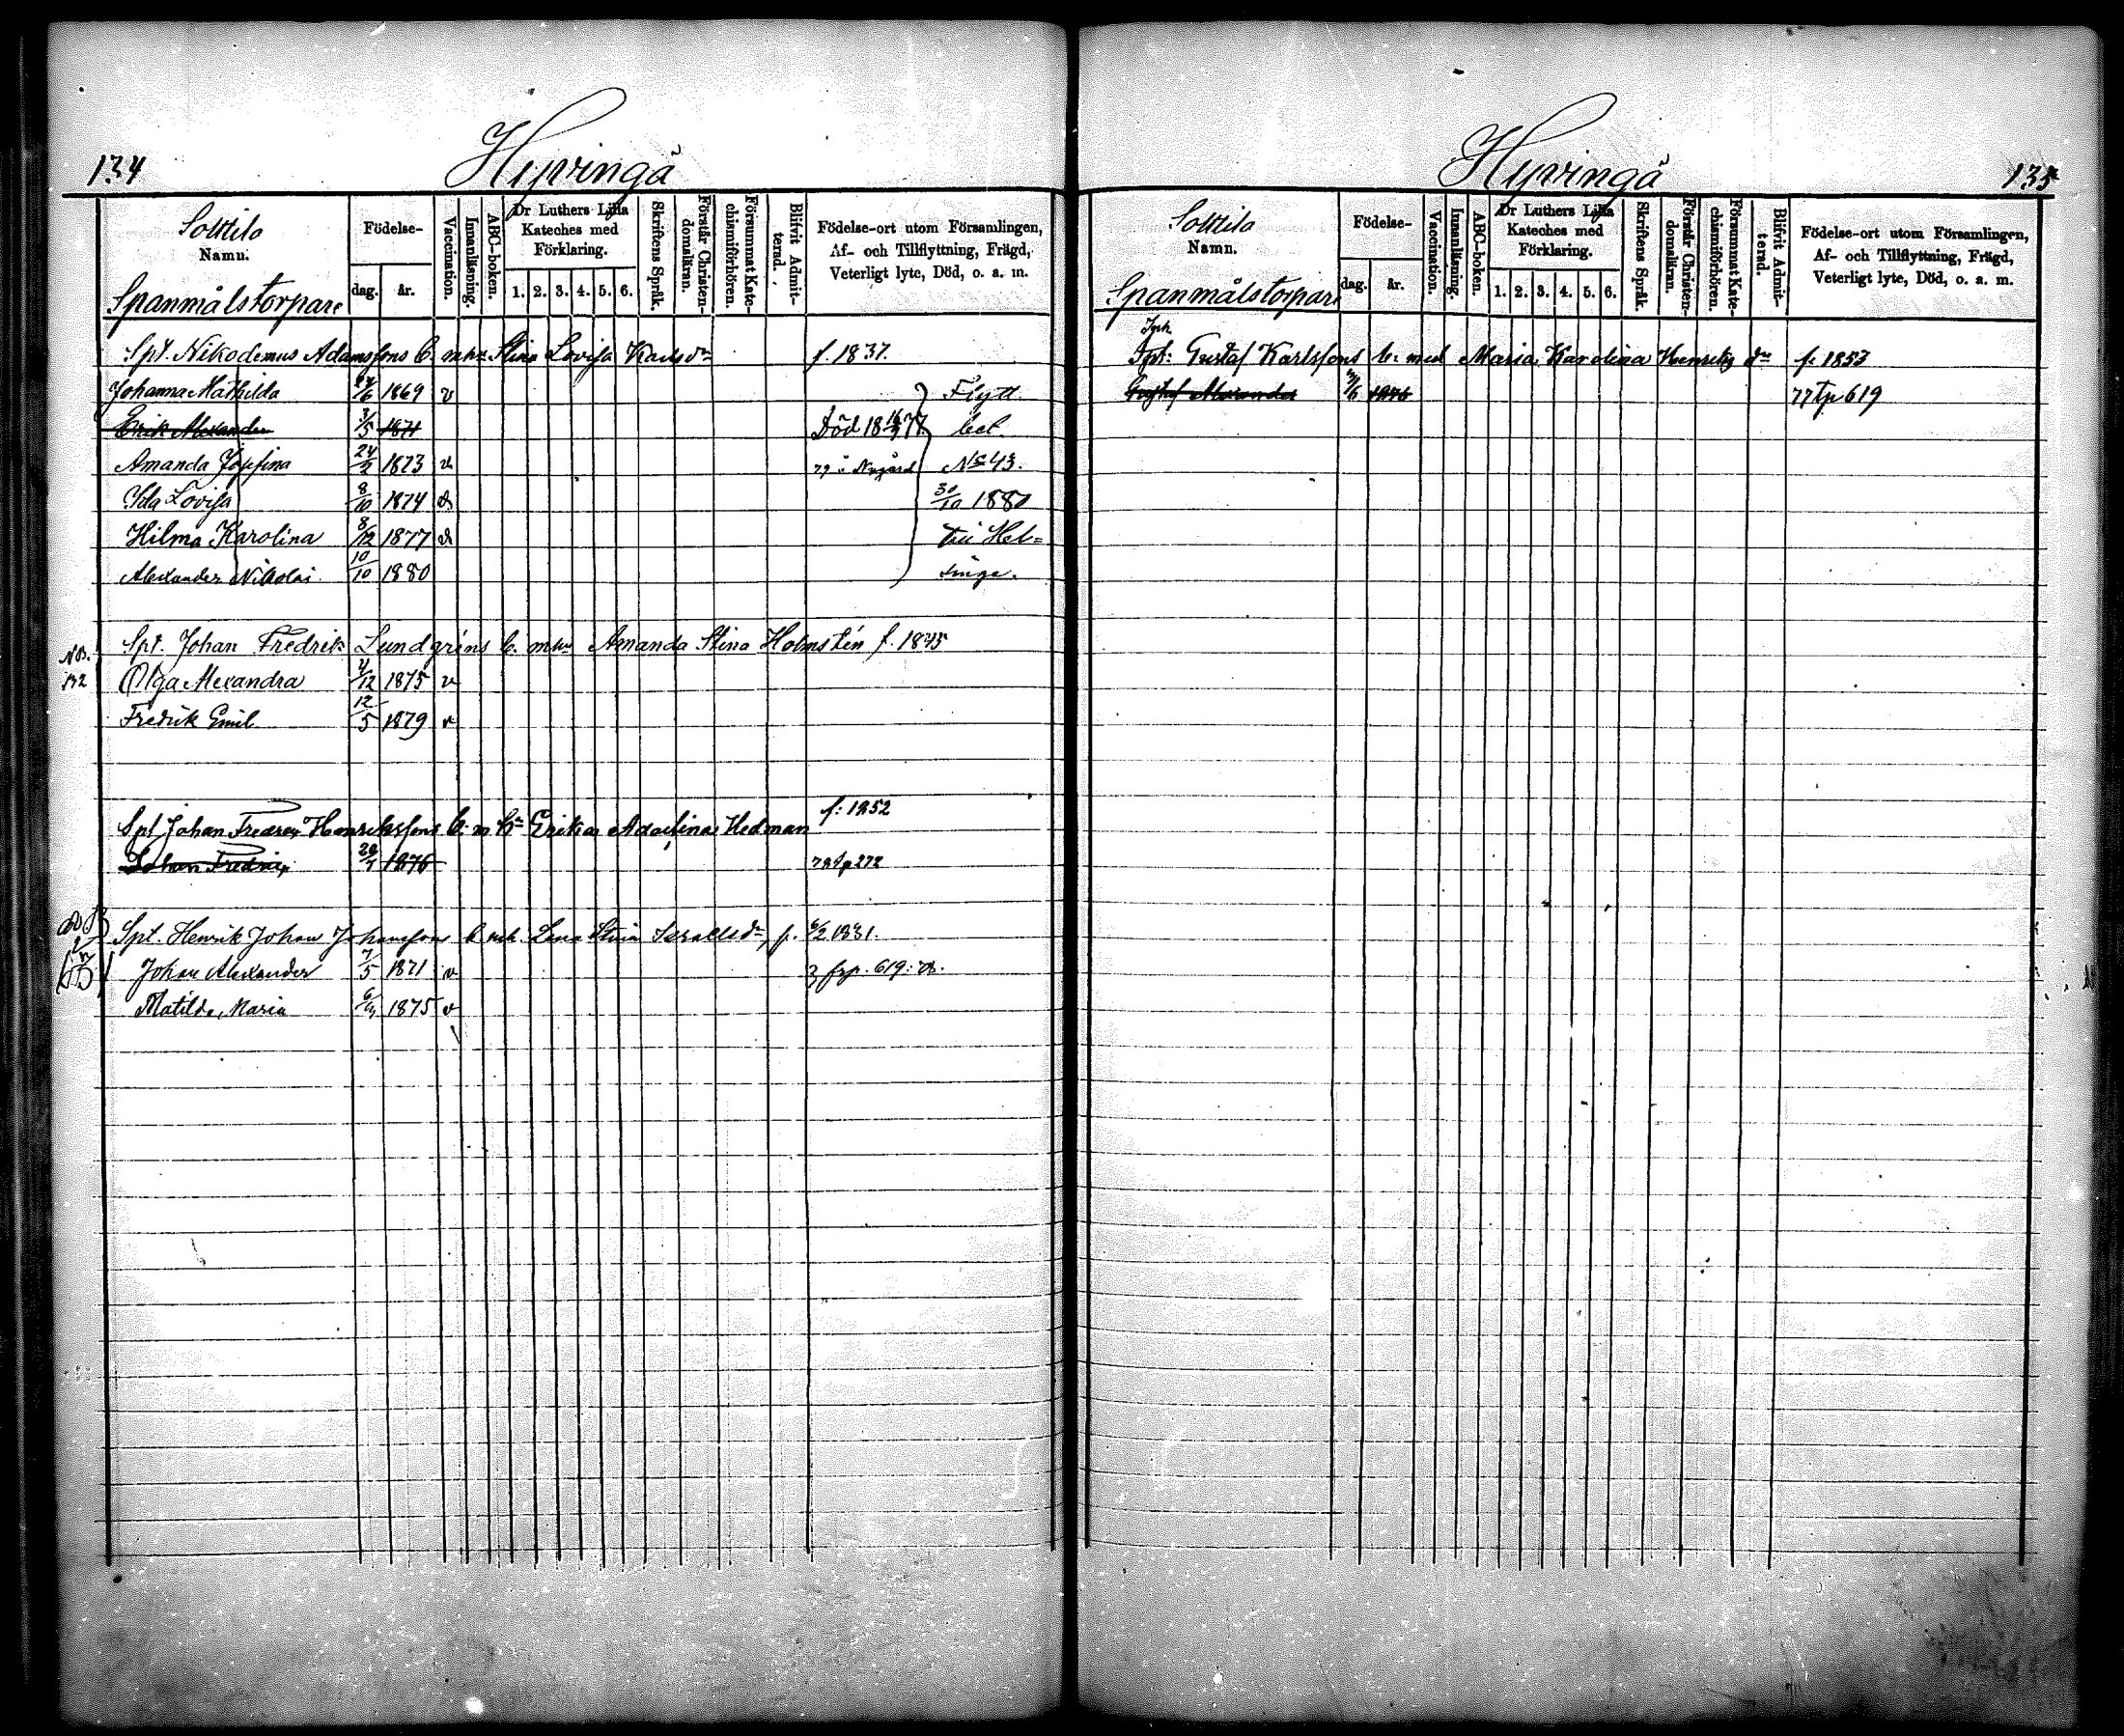 134
Hyvingå
Födelse-
Vaccination.
Innanläsning.
ABC-boken.
Dr Luthers Lilla
Kateches med
Förklaring.
Skriftens Språk.
Förstår Christen-
domsläran.
Försummat Kate-
chismiförhören.
Blifvit Admit-
terad.
Födelse-ort utom Församlingen,
Af- och Tillflyttning, Frägd,
Veterligt lyte, Död, o. a. m.
Namn.
dag. år. 1. 2. 3. 4. 5. 6.
Spanmålstorpare
Spt. Nikodemus Adamssons b. m hu Stina Lovisa Karlsdr f. 1837.
Johanna Mathilda 24/6 1869 v Flytt
Erik Alexander 3/5 1871 Död 18 77. bet.
Amanda Josefina 1873 v No 43.
Ida Lovisa 8/10 1874 v 30/10 1880
Hilma Karolina 8/12 1877 v till Hel=
Alexander Nikolai 10/10 1880 singe.
Spt. Johan Fredrik Lundgréns b. m hu Amanda Stina Holmstén f. 1845
NB.
132
Olga Alexandra 1/12 1875 v
Fredrik Emil 12/5 1879 v
Spt Johan Fredrik Henrikssons b. m Erika Adolfina Hedman f: 1852
Johan Fredrik 1876 78 tp 272
Spt. Henrik Johan Johanssons b Lena Stina Israelsdr, f. 6/2 1831.
Johan Alexander 7/5 1871 v 619
Matilda Maria 1875 v
Hyvingå
135
Födelse-
Vaccination.
Innanläsning.
ABC-boken.
Dr Luthers Lilla
Kateches med
Förklaring.
Skriftens Språk.
Förstår Christen-
domsläran.
Försummat Kate-
chismiförhören.
Blifvit Admit-
terad.
Födelse-ort utom Församlingen,
Af- och Tillflyttning, Frägd,
Veterligt lyte, Död, o. a. m.
Namn.
dag. år. 1. 2. 3. 4. 5. 6.
Spanmålstorpare
Spt: Gustaf Karlssons b. med Maria Karolina Henriks dr f. 1853
Gustaf Alexander 1876 77 tp 619